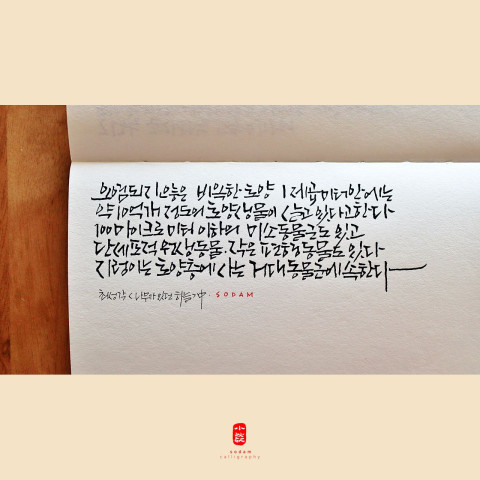 오염되지않은 비옥한 토양 1 제곱미터안에는
약 10억개 정도의 토양생물이 살고 있다고한다
100마이크로미터 이하의 미소동물군도 있고
단세포적 원생동물, 작은 편형동물도 있다
지렁이는 토양층에 사는 거대동물군에속한다
최성각 <나무가 있던 하늘> 中 · SODAM
小談
sodam
calligraphy